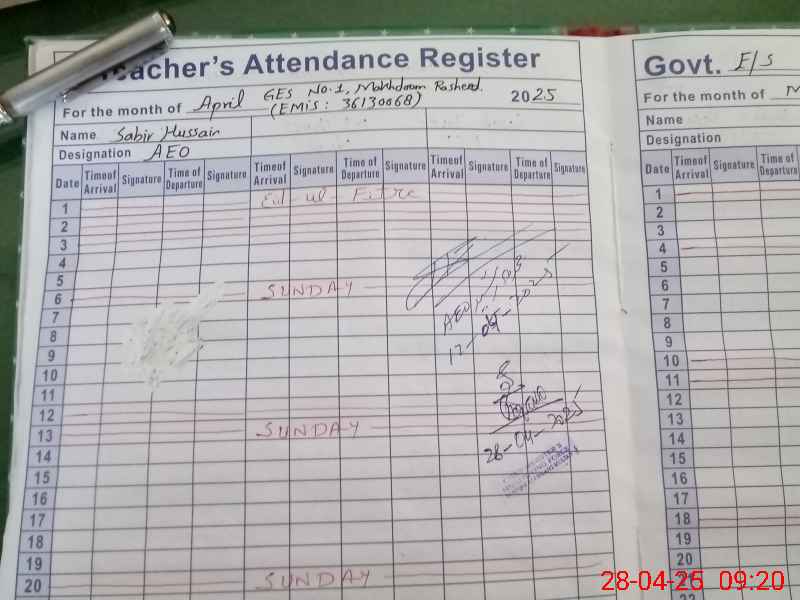 Teacher's Attendance Register
For the month of April GES No.1, Makhdoom Rasheed. 2025
(EMIS: 36130068)
Name Sabir Hussain
Designation AEO
Date Time of Arrival Signature Time of Departure Signature Time of Arrival Signature Time of Departure Signature Time of Arrival Signature Time of Departure Signature
1 Eid-ul-Fitre
2
3
4
5
6 SUNDAY
7
8
9
10
11
12
13 SUNDAY
14
15
16
17
18
19
20 SUNDAY
AEO
2025
28-04-2025
Govt. E/S
For the month of M
Name
Designation
Date Time of Arrival Signature Time of Departure
1
2
3
4
5
6
7
8
9
10
11
12
13
14
15
16
17
18
19
20
28-04-25 09:20